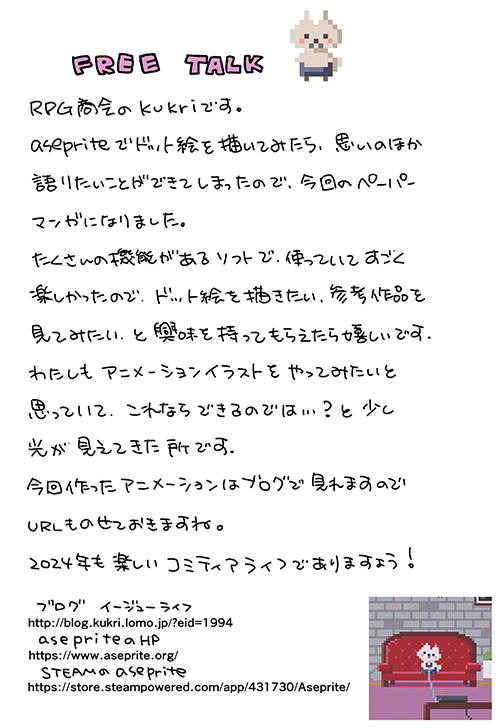 FREE TALK
RPG商会のkukriです。
asepriteでドット絵を描いてみたら、思いのほか
語りたいことができてしまったので、今回のペーパー
マンガになりました。
たくさんの機能があるソフトで、使っていてすごく
楽しかったので、ドット絵を描きたい、参考作品を
見てみたい、と興味を持ってもらえたら嬉しいです。
わたしもアニメーションイラストをやってみたいと
思っていて、これならできるのでは…？と少し
光が見えてきた所です。
今回作ったアニメーションはブログで見れますので
URLものせておきますね。
2024年も楽しいコミティアライフでありますよう！
ブログ イージューライフ
http://blog.kukri.lomo.jp/?eid=1994
asepriteのHP
https://www.aseprite.org/
STEAMのaseprite
https://store.steampowered.com/app/431730/Aseprite/